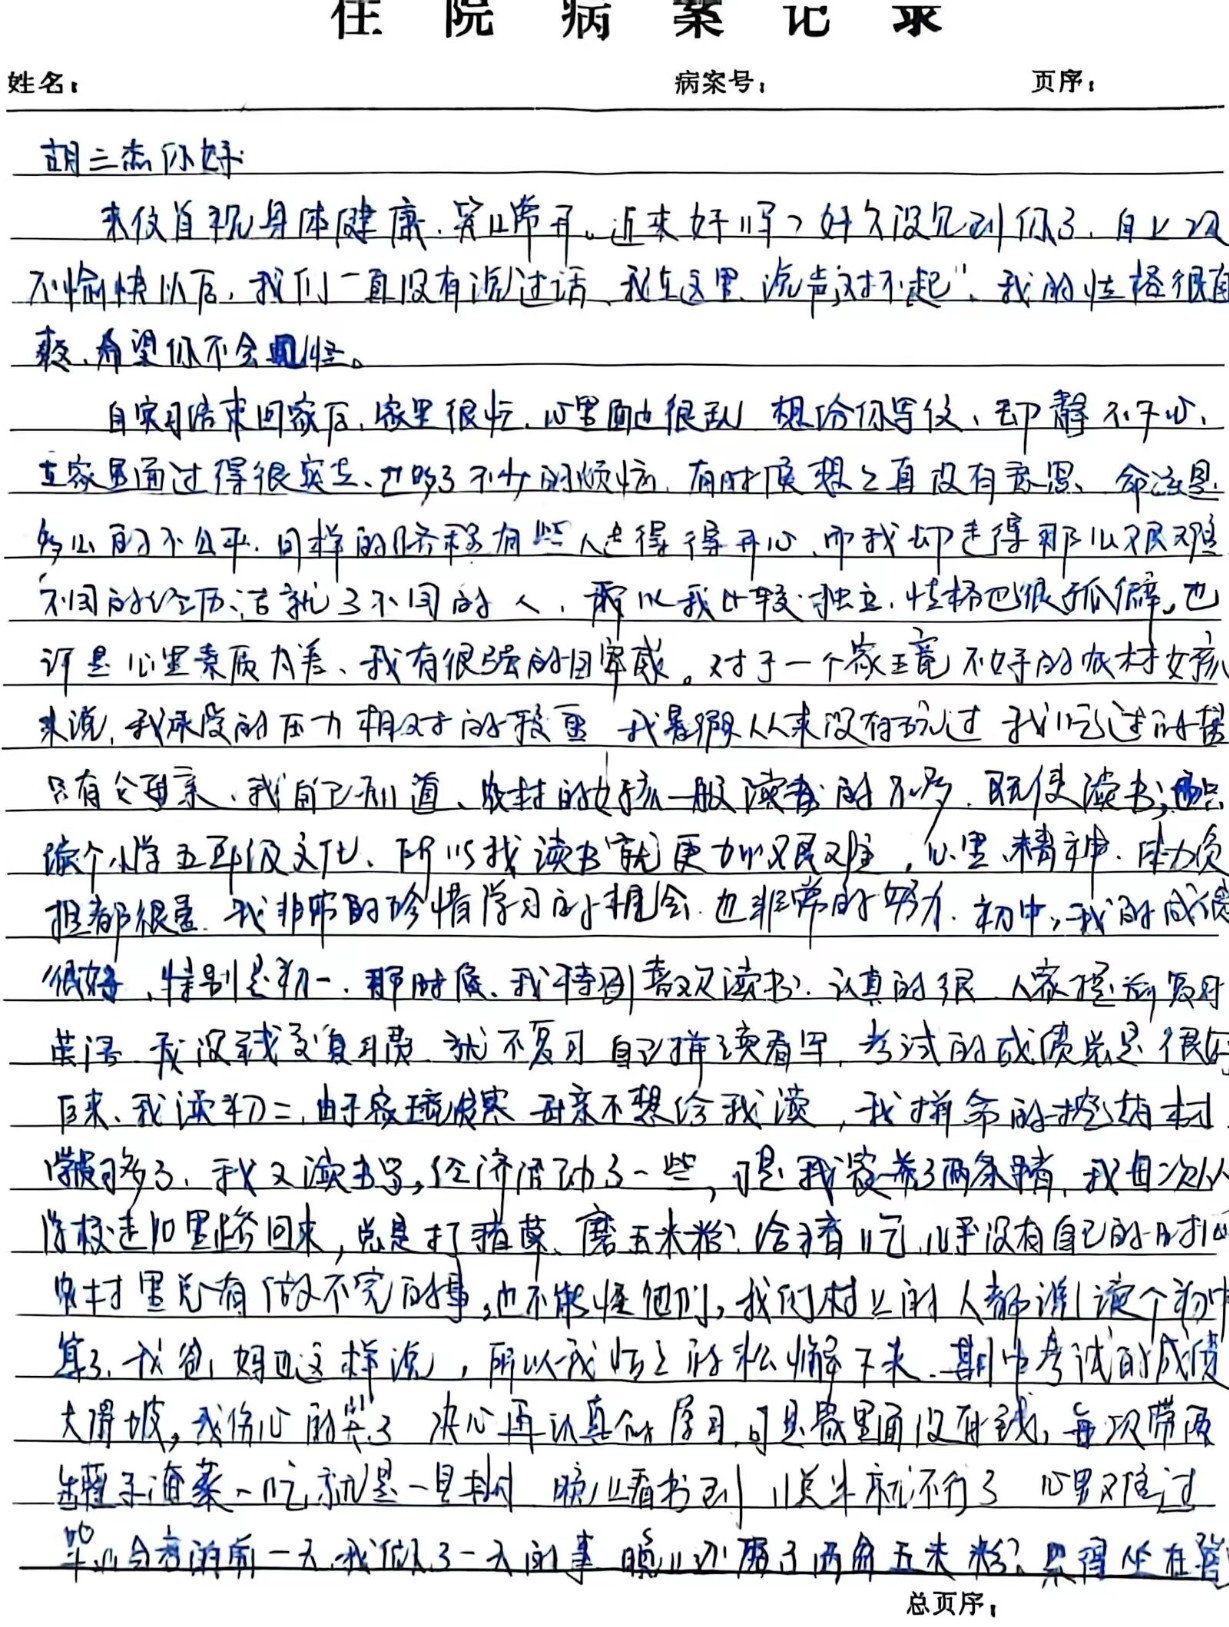 住院病案记录
姓名： 病案号： 页序：
胡三杰你好
来仪首祝身体健康、笑口常开。近来好吗？好久没见到你了，自上次
不愉快以后，我们一直没有说过话，我在这里说声“对不起”，我的性格很直
爽，希望你不会见怪。
自实习结束回家后，家里很忙，心里面也很乱，想给你写仪，却静不下心，
在家里面过得很实在，也多了不少的烦恼，有时候想想真没有意思，命运是
多么的不公平，同样的路程有些人走得得开心，而我却走得那么艰难
不同的经历造就了不同的人，所以我比较独立，性格也很孤僻，也
许是心里素质太差，我有很强的自卑感。对于一个家境不好的农村女孩
来说，我承受的压力相对的较重，我暑假从来没有玩过，我吃过的苦
只有父母亲、我自己知道、农村的女孩一般读书的不多，既使读书，也只
读个小学五年级文化、所以我读书就更加艰难，心里、精神、压力负
担都很重，我非常的珍惜学习的机会，也非常的努力，初中，我的成绩
很好，特别是初一，那时候，我特别喜欢读书，认真的很，人家提前复习
英语，我没钱交复习费，就不复习，自己拼读看写，考试的成绩总是很好
后来，我读初二，由于家境贫寒，母亲不想给我读，我拼命的挖药材
学费够了，我又读书了，经济活动了一些，可是我家养了两条猪，我每次从
学校走10里路回来，总是打猪草、磨玉米粉，给猪吃，几乎没有自己的时间
农村里总有做不完的事，也不能怪他们，我们村上的人都说读个初中
算了，我爸妈也这样说，所以我慢慢的松懈下来，期中考试的成绩
大滑坡，我伤心的哭了，决心再认真的学习，可是家里面没有钱，每次带两
罐子酸菜一吃就是一星期，晚上看书到11点半就不行了，心里难过
毕业会考的前一天，我做了一天的事，晚上还磨了两角玉米粉，累得坐在
总页序：